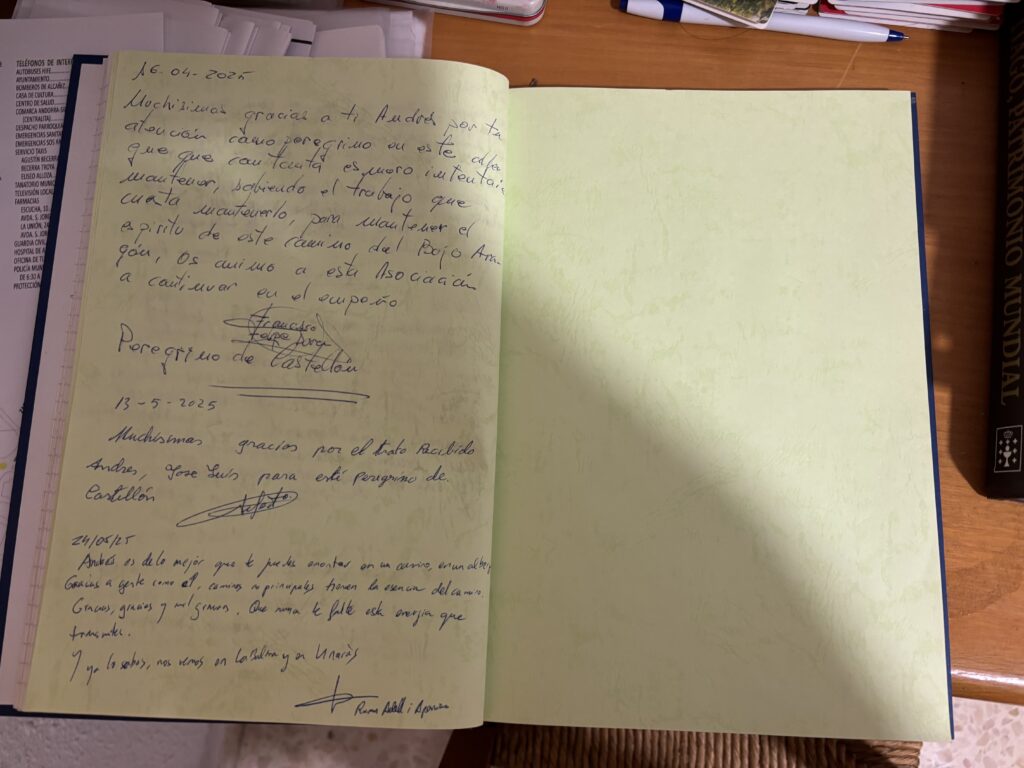 TELÉFONOS DE INTER
AUTOBUSES HIFE
AYUNTAMIENTO
BOMBEROS DE ALCAÑIZ
CASA DE CULTURA
CENTRO DE SALUD
COMARCA ANDORRA-S
(CENTRALITA)
DESPACHO PARROQUIA
EMERGENCIAS SANITA
EMERGENCIAS SOS AR
SERVICIO TAXIS
AGUSTÍN BECERR
BECERRA TROYA
EUSEO ALLOZA
TANATORIO MUNIC
TELEVISIÓN LOCAL
FARMACIAS
ESCUCHA, 10
AVDA. S. JORG
LA UNIÓN, 24
AVDA. S. JOR
GUARDIA CIVIL
HOSPITAL DE A
OFICINA DE T
POLICÍA MUN
DE 6:30 A
PROTECCIÓN
16-04-2025
Muchisimas gracias a ti Andrés por tu
atención como peregrino en este alber
que que con tanto esmero intentais
mantener, sabiendo el trabajo que
cuesta mantenerlo, para mantener el
espiritu de este camino del Bajo Ara-
gón, os animo a esta Asociación
a continuar en el empeño
Francisco
Peregrino de Castellón
13-5-2025
Muchisimas gracias por el trato Recibido
Andres, Jose Luis para esté peregrino de
Castellón
24/05/25
Andrés es de lo mejor que te puedes encontrar en un camino, en un alberg
Gracias a gente como el, caminos no principales tienen la esencia del camino.
Gracias, gracias y mil gracias. Que nunca te falte esta energia que
transmites.
Y ya lo sabes, nos vemos en La Balma y en
i Aparicio
, PATRIMONIO MUNDIAL